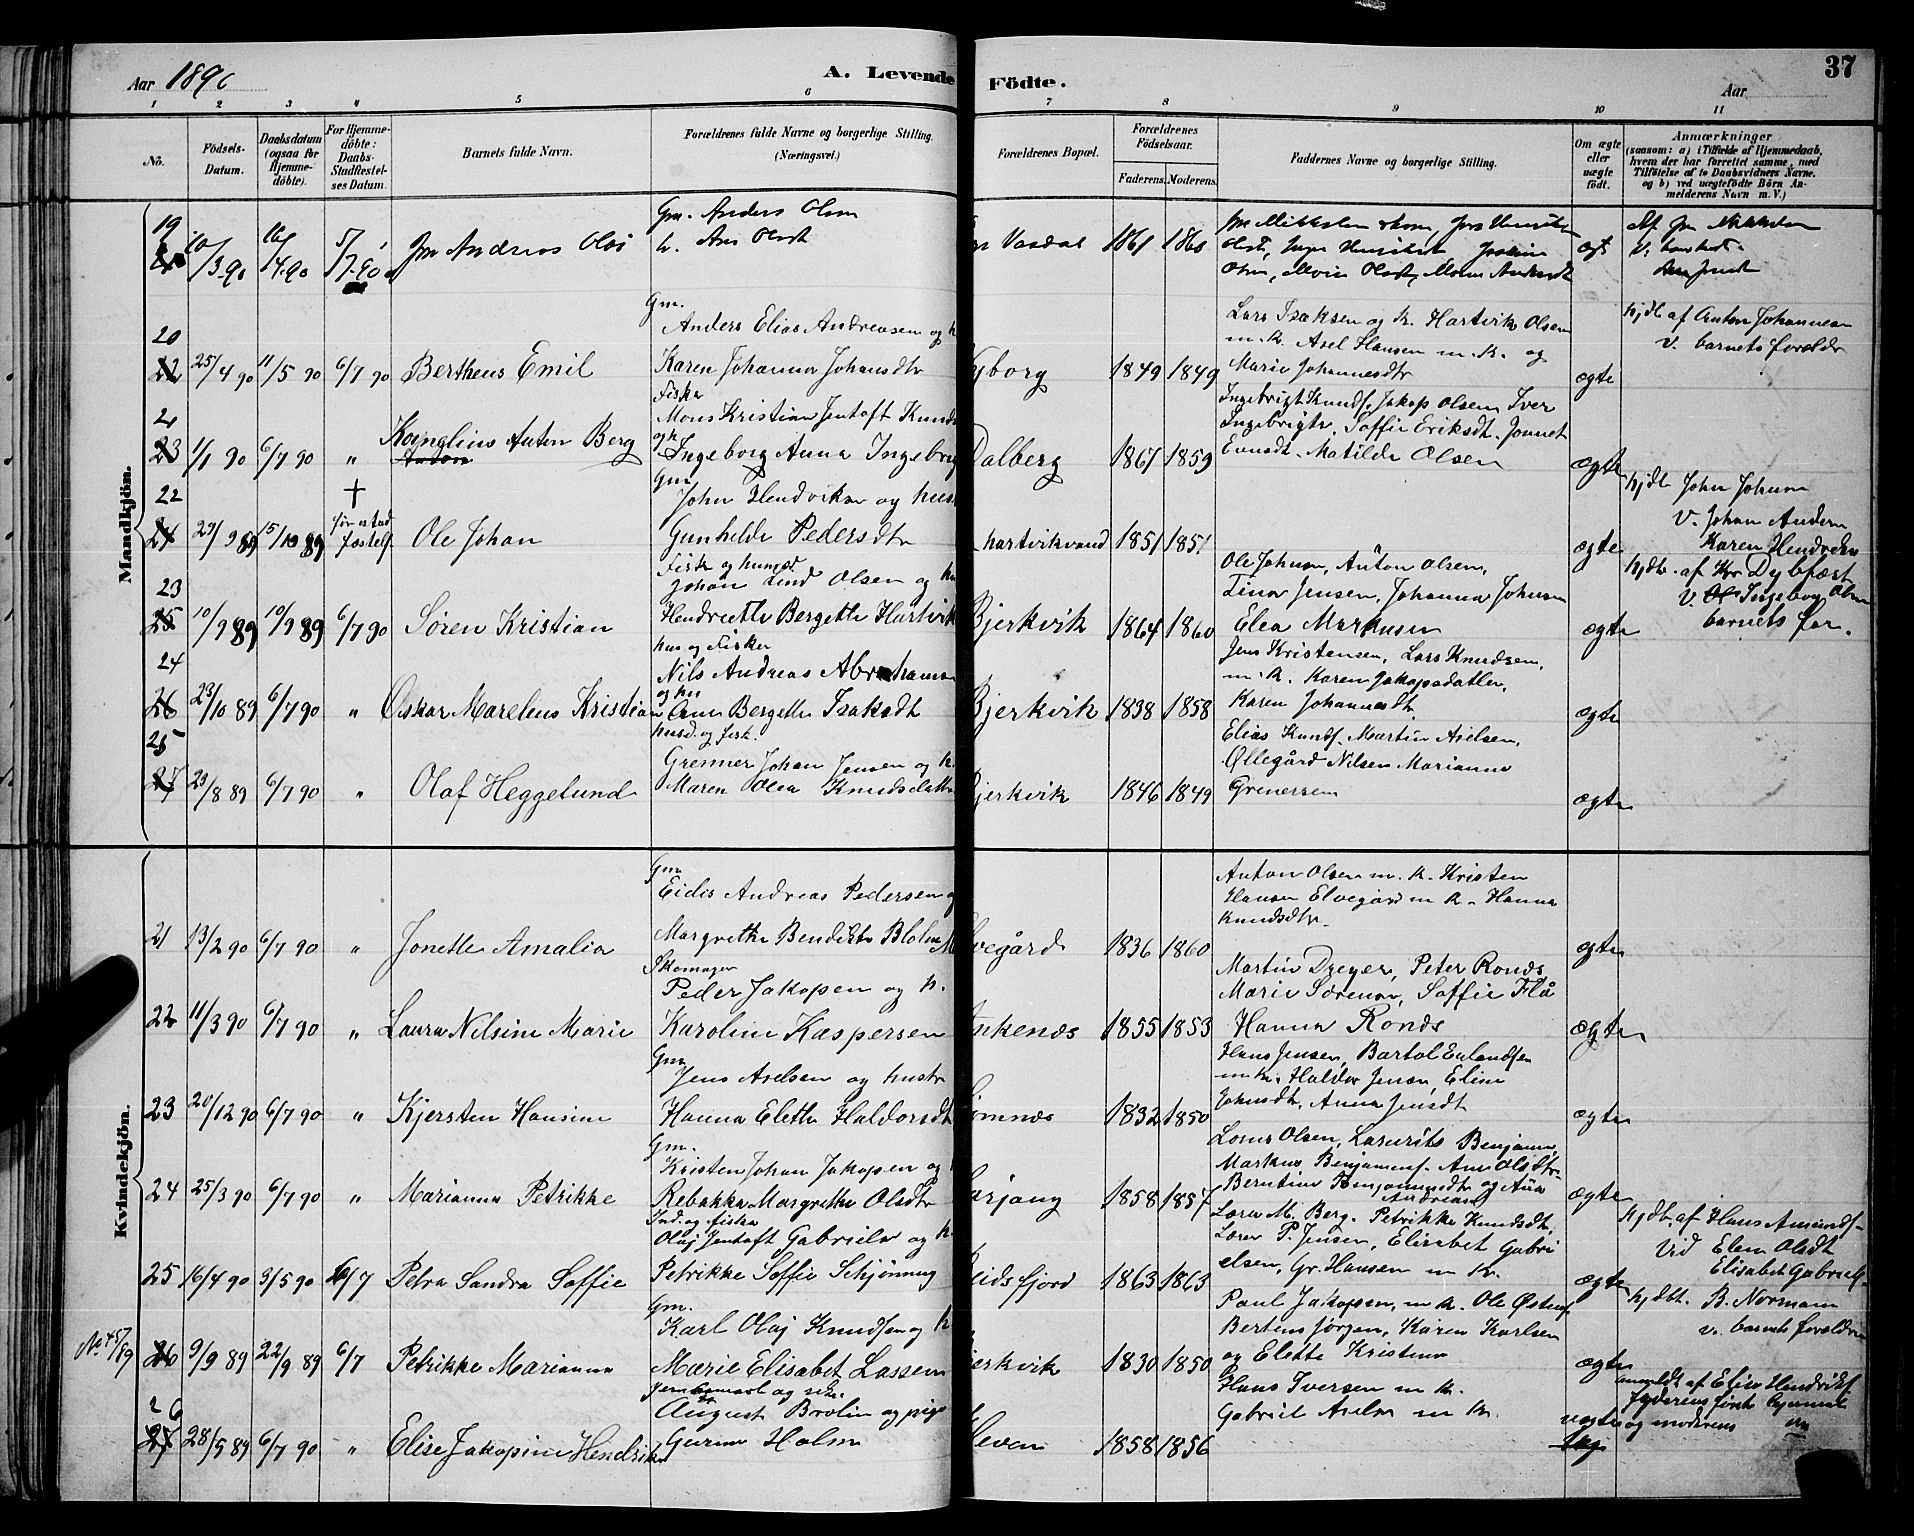 Aar 189
A. Levende Födte.
37
Aar
1 2 3 4 5 6 7 8 9 10 11
No.
Födsels-Datum.
Daabsdatum (ogsaa for Hjemme-döbte).
For Hjemme-döbte: Daabs-Stadfæstel-ses Datum.
Barnets fulde Navn.
Forældrenes fulde Navne og borgerlige Stilling.
(Næringsvei.)
Forældrenes Bopæl.
Forældrenes Födselsaar.
Faderens. Moderens.
Faddernes Navne og borgerlige Stilling.
Om ægte eller uægte födt.
Anmærkninger
(saasom: a) i Tilfælde af Hjemmedaab, hvem der har forrettet samme, med Tilföielse af to Daabsvidners Navne. og b) ved uægtefödte Börn An-melderens Navn m. V.)
Mandkjön.
19
10/3 90 16/4 90 5/7 90
Andreas
Gm. Anders Olsen
Vasdal 1861
20
25/4 90 11/5 90 6/7 90 Bertheus Emil
Gm.
Anders Elias Andreasen og h
Karen Johanna Johansdtr
yborg 1849 1849
Lars Isaksen og K. Hartvik Olsen
m. K. Axel Hansen m. K. og
Marie Johannesdtr
ægte
hjdb af Anton Johannesen
v. barnets foreldr
21
1/1 90 6/7 90 " Anton Berg
Fisker
Mons Kristian Jentoft Knuds
og h Ingeborg Anna Ingebrig
Dalberg 1867 1859
Ingebrigt Knuds. Jakop Olsen Iver
Ingebrigts. Soffie Eriksdt. Jonnet
Evensdt. Matilde Olsen
ægte
22
29/9 89 15/10 89 † før stad fæstels
Ole Johan
Gm
John Hendriksen og hust
Gunhilde Pedersdtr
hartvikvand 1851 1851
ægte
hjdb John Johnsen
v. Johan Anders
Karen Hendriks
23
10/9 89 19/9 89 6/7 90 Søren Kristian
Fisk og husmd
Johan Lind Olsen og hu
Hendrette Bergette Hartvik
Bjerkvik 1864 1860
Ole Johnsen, Anton Olsen,
Lina Jensen, Johanna Johnsen
Elea Markusen
ægte
hjdb. af Kr Dybfæst
v. Ingeborg Olsen
barnets far.
24
23/10 89 6/7 90 " Oskar Marelius Kristian
hus og Fisker
Nils Andreas Abrahamsen
og hu
Ane Bergette Isaksdt
Bjerkvik 1838 1858
Jens Kristensen, Lars Knudsen,
m. K. Karen Jakopsdatter,
Karen Johannesdtr
ægte
25
23/8 89 6/7 90 " Olaf Heggelund
husd. og fisk.
Grenner Johan Jensen og h.
Maren Olea Knudsdatter
jerkvik 1846 1849
Elias Knuds. Martin Axelsen,
Øllegård Nilsen Marianna
Grenersen
ægte
Kvindekjön.
21 13/2 90 6/7 90 " Jonette Amalia
Gm
Eidis Andreas Pedersen og
Margrethe Bendikte
vegård 1836 1860
Anton Olsen m. K. Kristen
Hansen Elvegård m K. Hanna
Knudsdtr.
ægte
22 11/3 90 6/7 90 " Laura Nilsine Marie
Skomager
Peder Jakopsen og h.
Karoline Kaspersen
nkenæs 1855 1853
Martin Dreyer, Peter Ronds
Marie Sørensen, Soffie Flå
Hanna Ronds
ægte
23 20/12 90 6/7 90 " Kjersten Hansine
Gm
Jens Axelsen og hustr
Hanna Elette Haldorsdtr
ømnes 1832 1850
Hans Jensen, Bartol Erlandsen
m K. Haldor Jensen, Eline
Johnsdt. Anna Jensdt
ægte
24 25/3 90 6/7 90 " Marianna Petrikke
Gm.
Kristen Johan Jakopsen og
Rebekka Margrethe Olsdtr
arjang 1858 1857
Olsen, Benjamin,
Markus Benjamins. Ane Olsdtr
Berntine Benjaminsdt og Ana
Andreas
ægte
25 16/4 90 3/5 90 6/7 Petra Sandra Soffie
Ind. og fisker
Olaj Jentoft Gabrielsen og h.
Petrikke Soffie Schjønning
eidsfjord 1863 1863
M. Berg. Petrikke Knudsdt,
P. Jensen, Elisabet Gabri
elsen, Gr. Hansen m K.
ægte
hjdb. af Hans Amunds.
Vid Elen Olsdt
Elisabet Gabriels.
No 457/89
26 9/9 89 22/9 89 6/7 Petrikke Marianna
Gm.
Karl Olaj Knudsen og h
Marie Elisabet Lassen
jerkvik 1830 1850
Paul Jakopsen, m K. Ole Østen.
Bertens Jørgen, Karen Karlsen
og Elette Kristensen
ægte
hjdbt. B. Normann
v. barnets foreldre
26
27 28/5 89 6/7 90 " Elise Jakopine Hendrikke
August Brolin og pige
Gurine Holm
leven 1858 1856
Hans Iversen m K.
Gabriel Axelsen m K.
uægte
anmeldt af Elise Hendriks.
og moderens